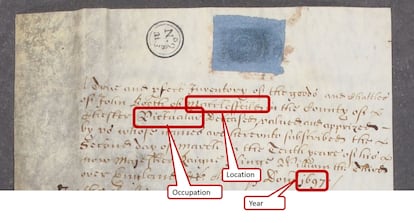 A True and pfect Inventory of the goods and chattles
of John Booth of Macclesfeild in the County of
Chester Victualar deceased valued and apprized
by us whose names are hereunto subscribed the
Second day of march in the Tenth yeare of his
now Majesties Reigne King William the third
over England Dom: 1697
Location
Occupation
Year